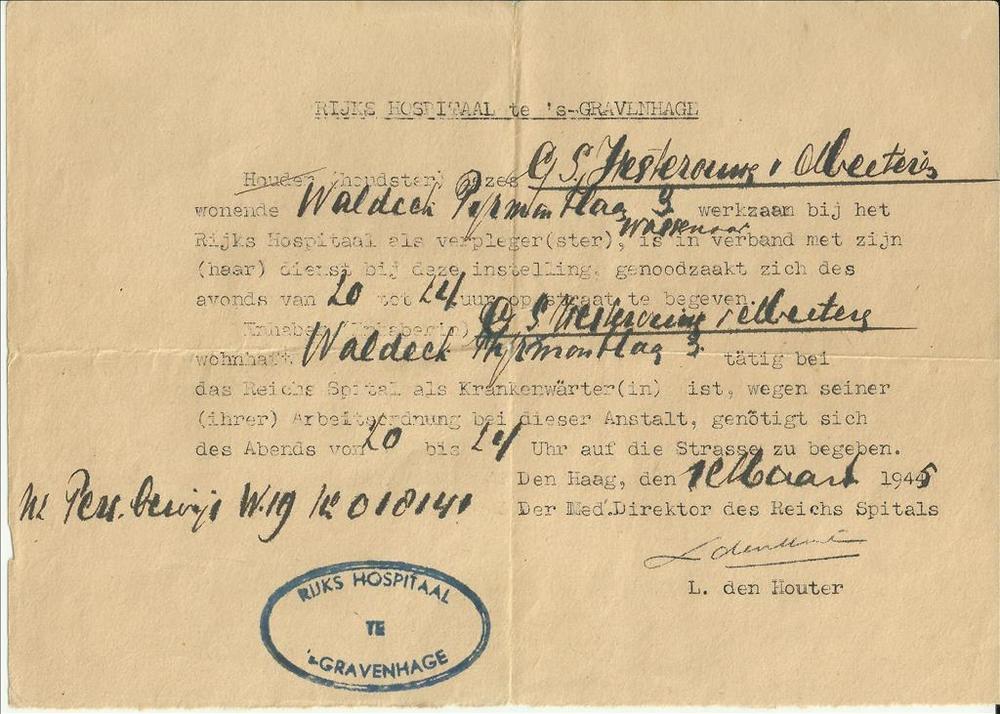 RIJKS HOSPITAAL te 's-GRAVENHAGE
Houder (houdster) dezes G S.
wonende Waldeck Pyrmontlaan 3 werkzaam bij het
Wassenaar
Rijks Hospitaal als verpleger(ster), is in verband met zijn
(haar) dienst bij deze instelling, genoodzaakt zich des
avonds van 20 tot 24 uur op straat te begeven.
Inhaber (Inhaberin) G S
wohnhaft Waldeck Pyrmontlaan 3 tätig bei
das Reichs Spital als Krankenwärter(in) ist, wegen seiner
(ihrer) Arbeitsordnung bei dieser Anstalt, genötigt sich
des Abends von 20 bis 24 Uhr auf die Strasse zu begeben.
Den Haag, den 1 Maart 1945
Nr Pers. bewijs W.19 No 018141
Der Med.Direktor des Reichs Spitals
L den Houter
L. den Houter
RIJKS HOSPITAAL
TE
's-GRAVENHAGE